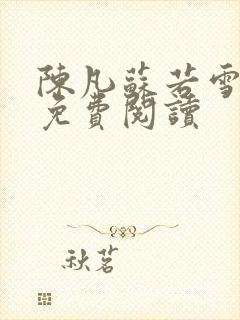 陳凡蘇若雪
免費閱讀
秋茗